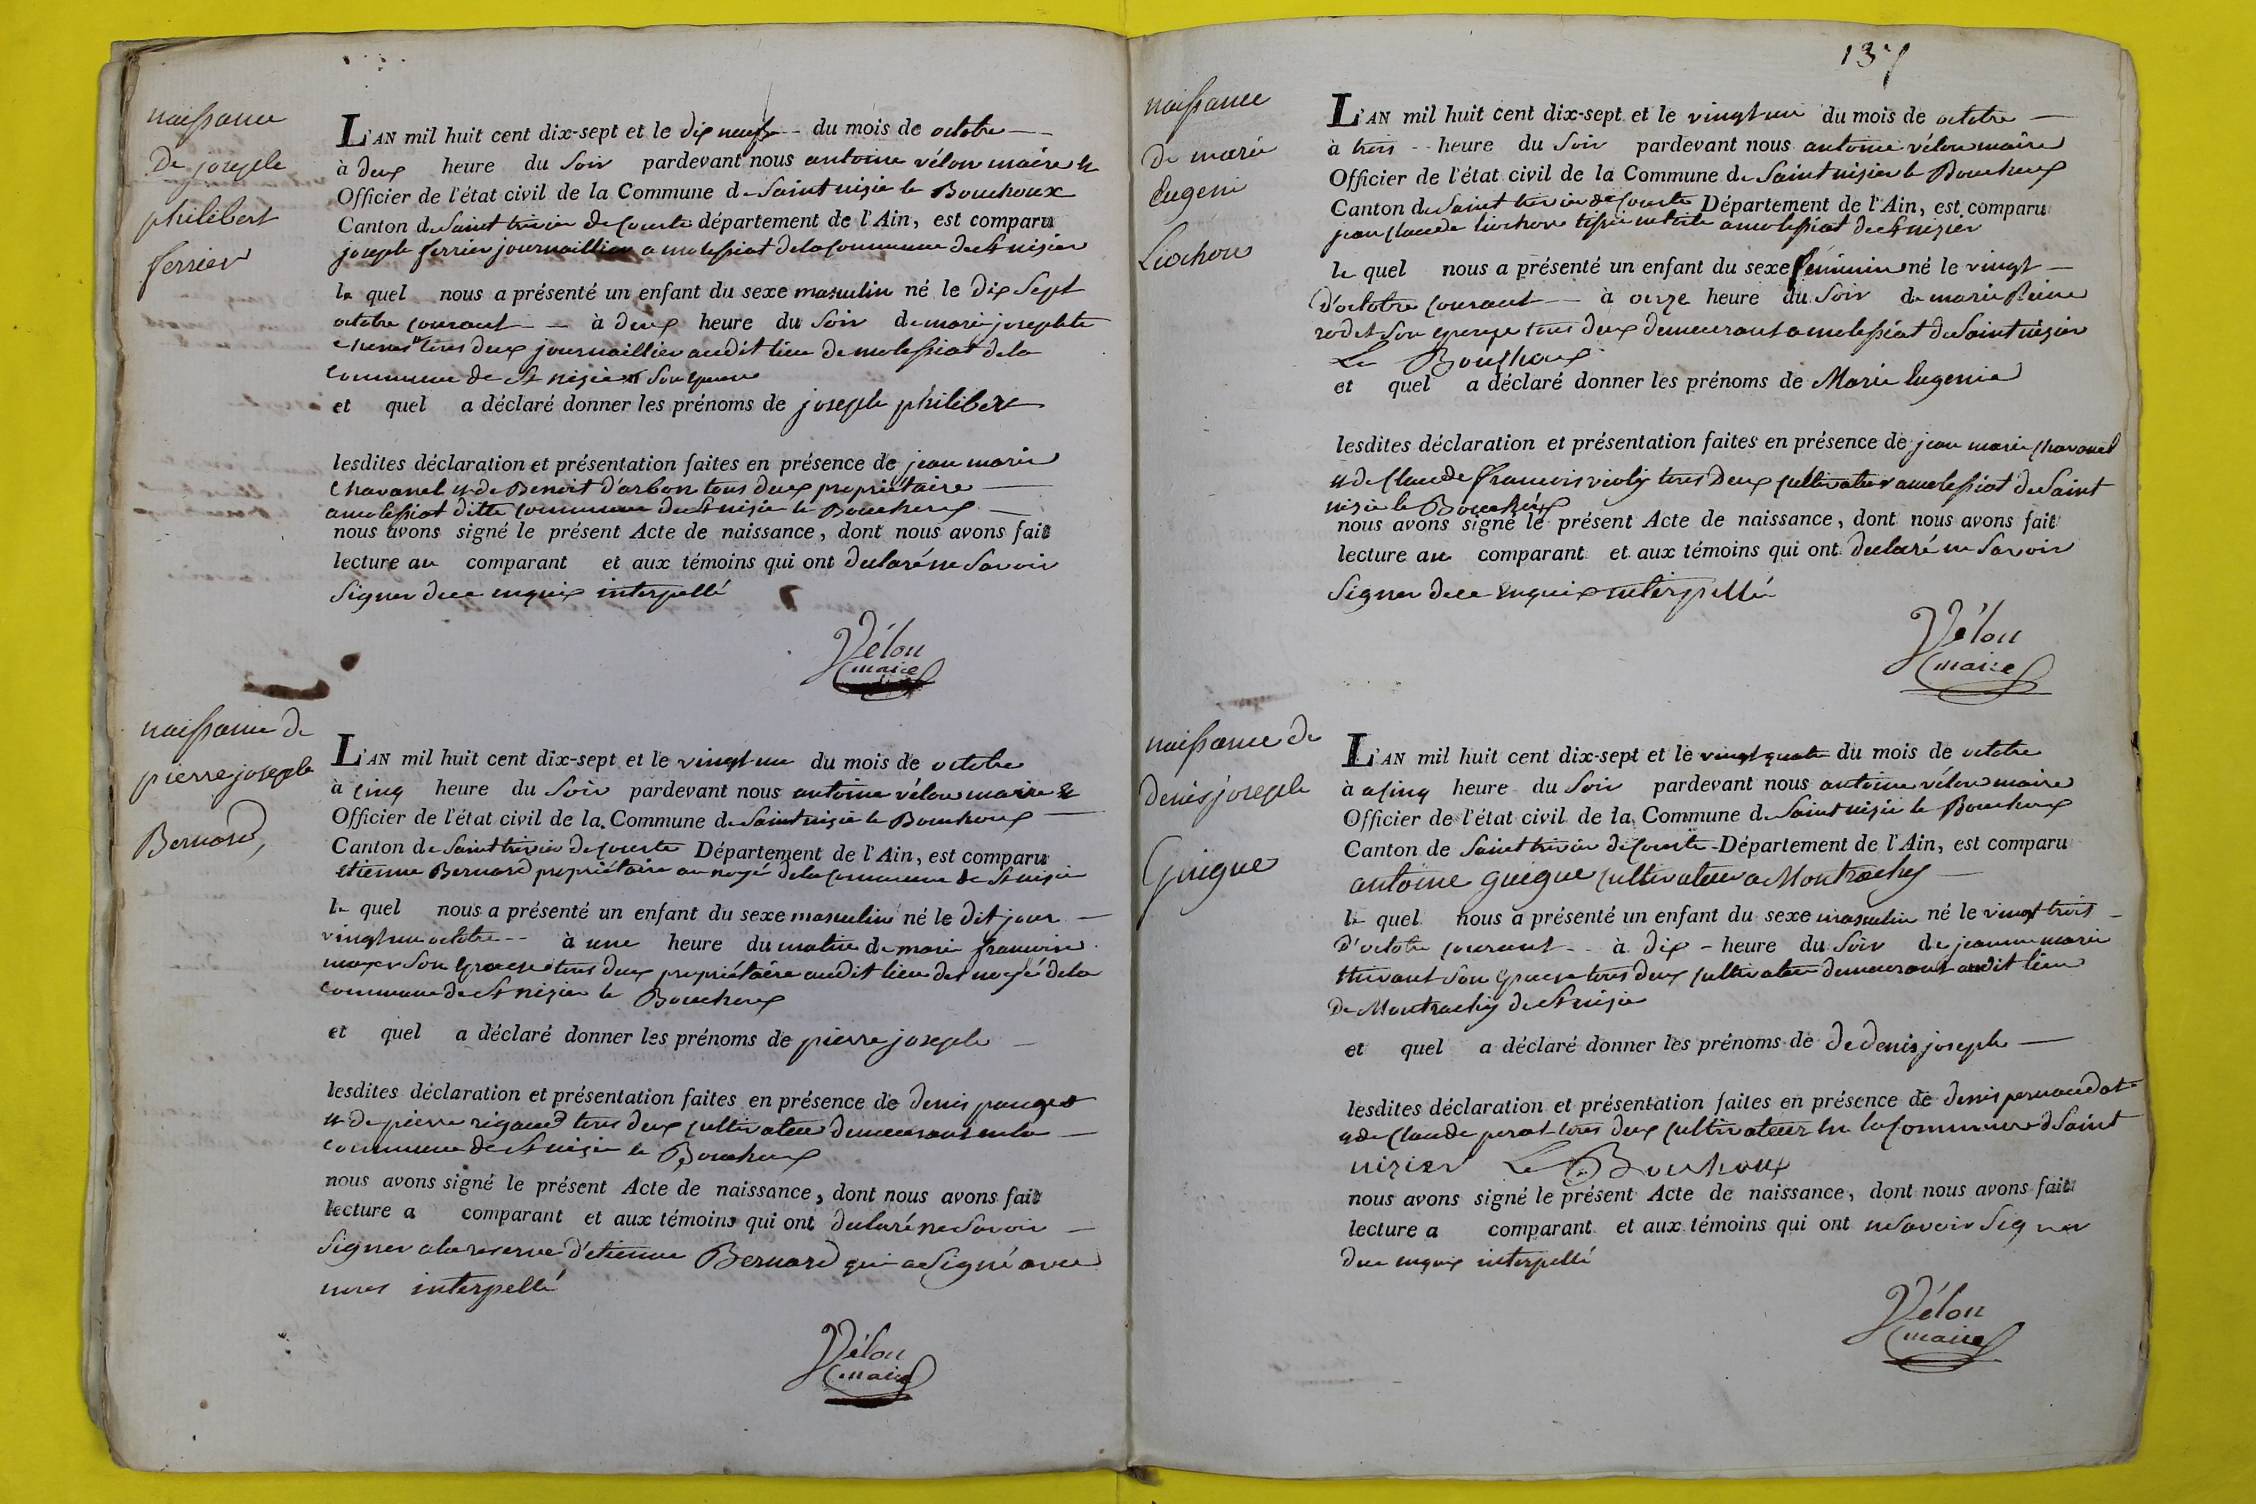 naissance
De joseph
philibert
ferrier
L'AN mil huit cent dix-sept et le dix neuf du mois de octobre
à deux heure du Soir pardevant nous antoine vélon maire &
Officier de l'état civil de la Commune de Saint nisié le Bouchoux
Canton de Saint trivier de Courte département de l'Ain, est comparu
joseph ferrier journaillier a molessiat de la Commune de St nisier
le quel nous a présenté un enfant du sexe masculin né le Dix Sept
octobre courant à deux heure du Soir de marie josephte
tous deux journaillier audit lieu de molessiat de la
Commune de St nisié
et quel a déclaré donner les prénoms de joseph philibert
lesdites déclaration et présentation faites en présence de jean marie
Chavanel & de Benoit D'arbon tous deux propriétaire
a molessiat ditte Commune de St nisié le Bouchoux
nous avons signé le présent Acte de naissance, dont nous avons fait
lecture au comparant et aux témoins qui ont declaré ne Savoir
Signer de ce enquix interpellé
Vélon
maire
naissance de
pierre joseph
Bernard
L'AN mil huit cent dix-sept et le vingt un du mois de octobre
à Cinq heure du Soir pardevant nous antoine vélon maire &
Officier de l'état civil de la Commune de Saint nisié le Bouchoux
Canton de Saint trivier de Courte Département de l'Ain, est comparu
etienne Bernard propriétaire au noyé de la Commune de St nisié
le quel nous a présenté un enfant du sexe masculin né le dit jour
vingt un octobre à une heure du matin de marie francoise
son tous deux propriétaire audit lieu des noyé de la
Commune de St nisier le Bouchoux
et quel a déclaré donner les prénoms de pierre joseph
lesdites déclaration et présentation faites en présence de denis
& de pierre rigaud tous deux cultivateur demeurant en la
Commune de St nisié le Bouchoux
nous avons signé le présent Acte de naissance, dont nous avons fait
lecture a comparant et aux témoins qui ont declaré ne Savoir
Signer a la reserve d'etienne Bernard qui a Signé avec
nous interpellé
Vélon
maire
137
naissance
de marie
Eugeni
Liochon
L'AN mil huit cent dix-sept et le vingt un du mois de octobre
à trois heure du Soir pardevant nous antoine vélon maire
Officier de l'état civil de la Commune de Saint nisier le Bouchoux
Canton de Saint trivier de Courte Département de l'Ain, est comparu
jean Claude liochon a molessiat de St nizier
le quel nous a présenté un enfant du sexe féminin né le vingt
d'octobre courant à onze heure du Soir de marie Reine
rodet Son epouse tous deux demeurant a molessiat de Saint nisier
Le Bouchoux
et quel a déclaré donner les prénoms de Marie Eugenie
lesdites déclaration et présentation faites en présence de jean marie Chavanel
& de Claude francois tous Deux Cultivateur a molessiat de Saint
nisié le Bouchoux
nous avons signé le présent Acte de naissance, dont nous avons fait
lecture au comparant et aux témoins qui ont declaré ne Savoir
Signer de ce enquix interpellé
Vélon
maire
naissance de
denis joseph
Guigue
L'AN mil huit cent dix-sept et le vingt quatre du mois de octobre
à a Cinq heure du Soir pardevant nous antoine vélon maire
Officier de l'état civil de la Commune de Saint nisié le Bouchoux
Canton de Saint trivier de Courte Département de l'Ain, est comparu
antoine guigue Cultivateur a Montrachy
le quel nous a présenté un enfant du sexe masculin né le vingt trois
d'octobre courant à dix heure du Soir de jeanne marie
thevant Son tous deux Cultivateur demeurant audit lieu
De Montrachy de St nisié
et quel a déclaré donner les prénoms de de denis joseph
lesdites déclaration et présentation faites en présence de denis pernaudat
& de Claude perat tous deux Cultivateur en la Commune de Saint
nizier Le Bouchoux
nous avons signé le présent Acte de naissance, dont nous avons fait
lecture a comparant et aux témoins qui ont ne Savoir Signer
dece enquix interpellé
Vélon
maire